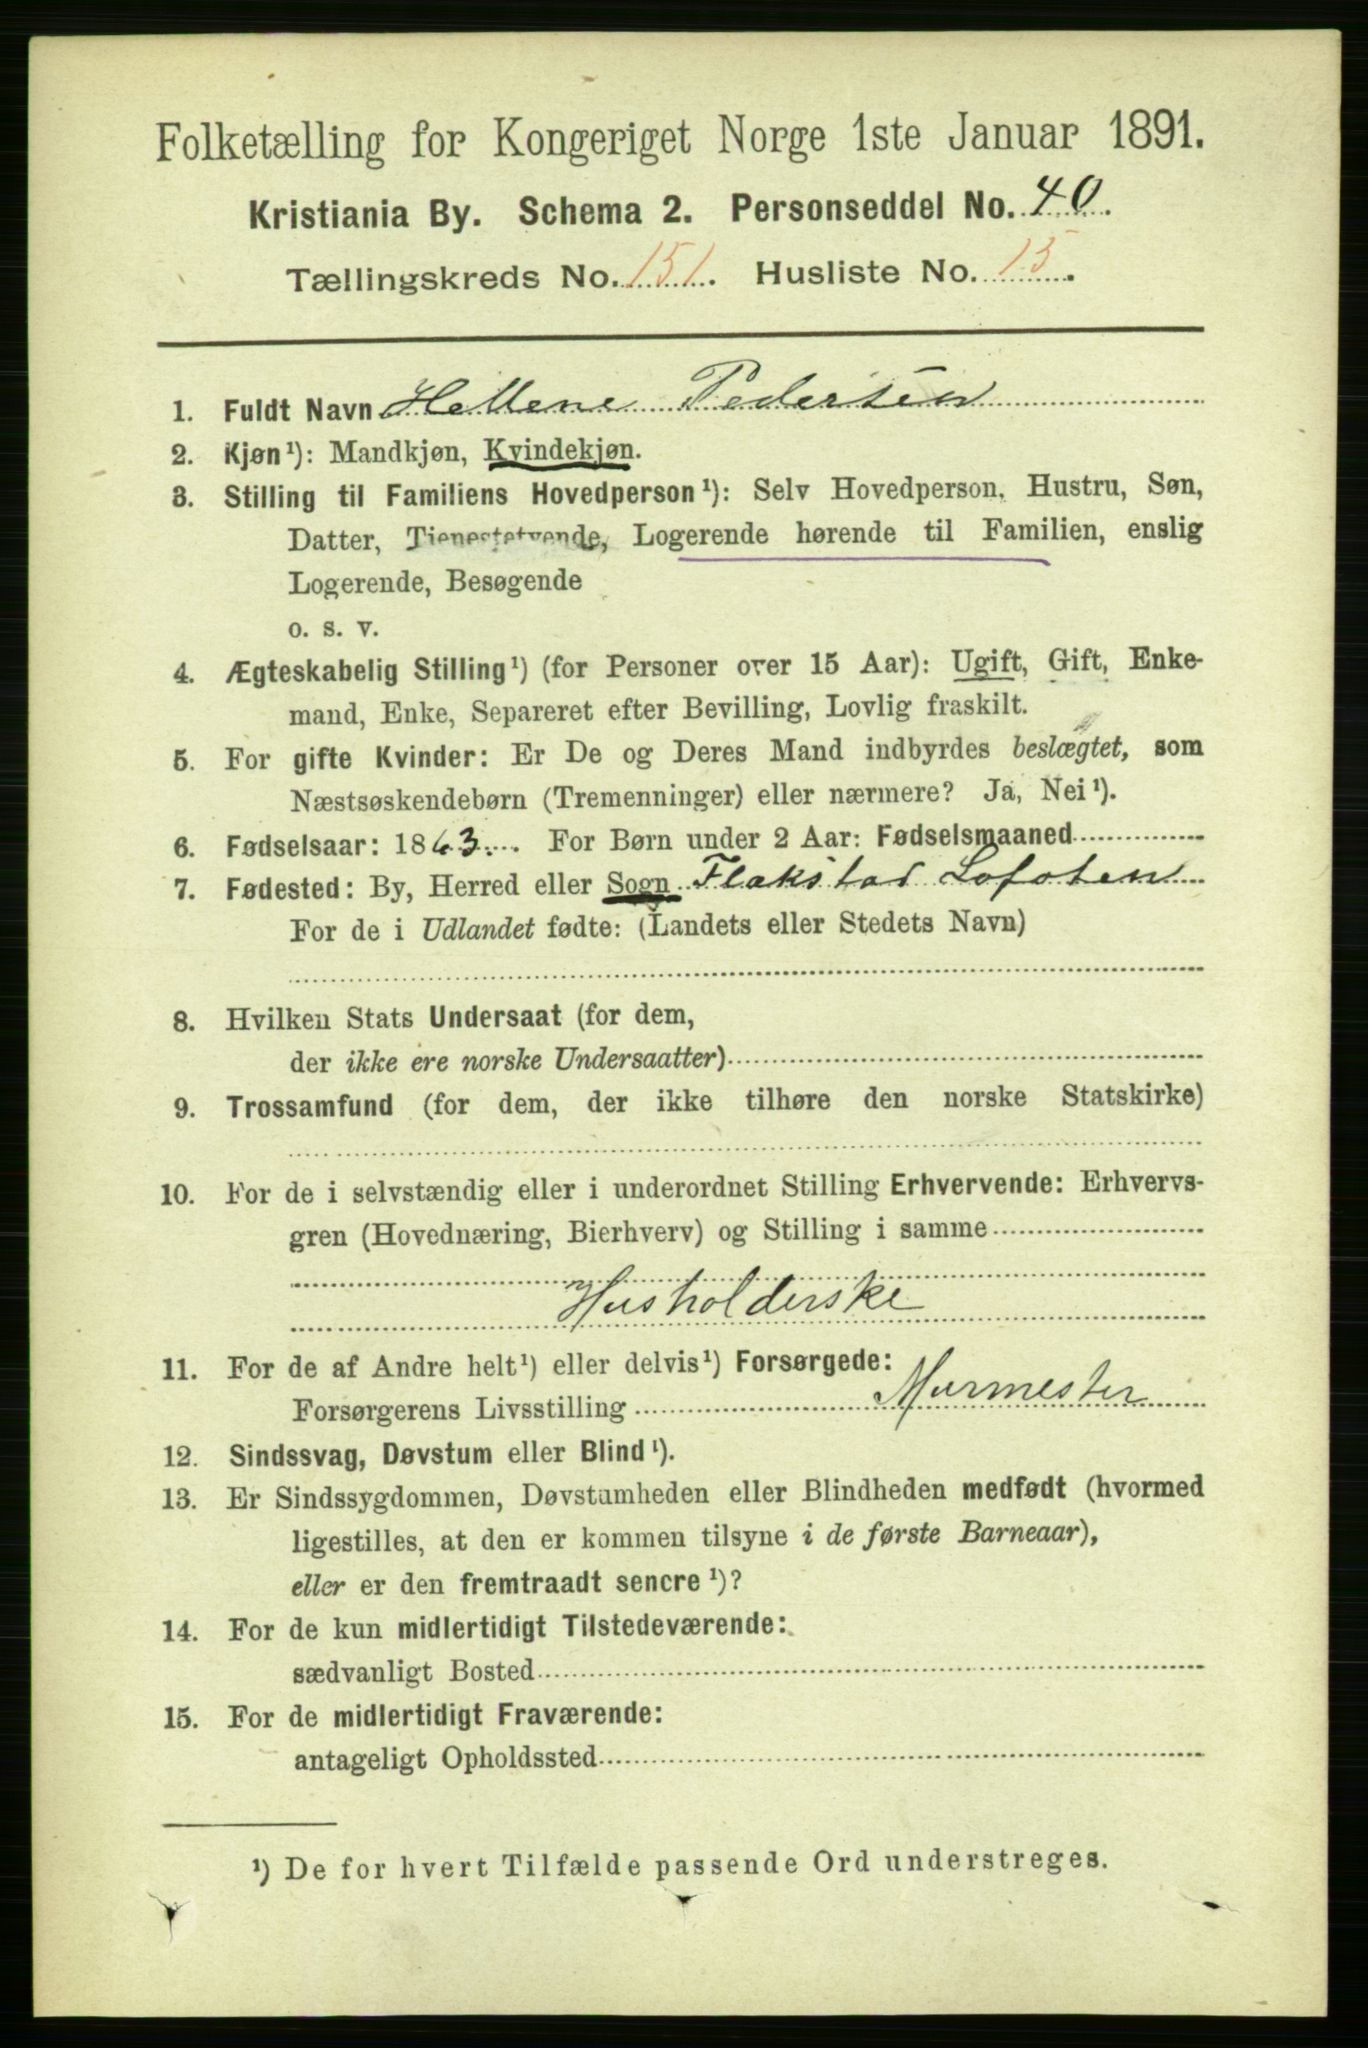 Folketælling for Kongeriget Norge 1ste Januar 1891.
Kristiania By. Schema 2. Personseddel No. 40.
Tællingskreds No. 151. Husliste No. 15.
1. Fuldt Navn Hellene Pedersen
2. Kjøn¹): Mandkjøn, Kvindekjøn.
3. Stilling til Familiens Hovedperson¹): Selv Hovedperson, Hustru, Søn,
Datter, Tjenestetyende, Logerende hørende til Familien, enslig
Logerende, Besøgende
o. s. v.
4. Ægteskabelig Stilling¹) (for Personer over 15 Aar): Ugift, Gift, Enke-
mand, Enke, Separeret efter Bevilling, Lovlig fraskilt.
5. For gifte Kvinder: Er De og Deres Mand indbyrdes beslægtet, som
Næstsøskendebørn (Tremenninger) eller nærmere? Ja, Nei¹).
6. Fødselsaar: 1863. For Børn under 2 Aar: Fødselsmaaned
7. Fødested: By, Herred eller Sogn Flakstad Lofoten
For de i Udlandet fødte: (Landets eller Stedets Navn)
8. Hvilken Stats Undersaat (for dem,
der ikke ere norske Undersaatter)
9. Trossamfund (for dem, der ikke tilhøre den norske Statskirke)
10. For de i selvstændig eller i underordnet Stilling Erhvervende: Erhvervs-
gren (Hovednæring, Bierhverv) og Stilling i samme
Husholderske
11. For de af Andre helt¹) eller delvis¹) Forsørgede:
Forsørgerens Livsstilling Murmester
12. Sindssvag, Døvstum eller Blind¹).
13. Er Sindssygdommen, Døvstumheden eller Blindheden medfødt (hvormed
ligestilles, at den er kommen tilsyne i de første Barneaar),
eller er den fremtraadt sencre¹)?
14. For de kun midlertidigt Tilstedeværende:
sædvanligt Bosted
15. For de midlertidigt Fraværende:
antageligt Opholdssted
¹) De for hvert Tilfælde passende Ord understreges.